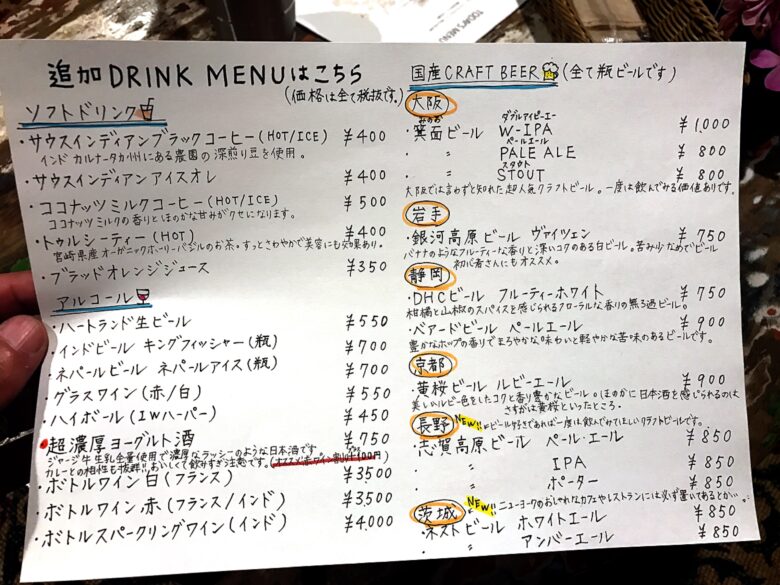 TODAY'S MENU
追加DRINK MENUはこちら
(価格は全て税抜です。)
ソフトドリンク
・サウスインディアンブラックコーヒー(HOT/ICE) ¥400
インド カルナータカ州にある農園の深煎り豆を使用。
・サウスインディアンアイスオレ ¥400
・ココナッツミルクコーヒー(HOT/ICE) ¥500
ココナッツミルクの香りとほのかな甘みがクセになります。
・トゥルシーティー(HOT) ¥400
宮崎県産オーガニックホーリーバジルのお茶。すっとさわやかで美容にも効果あり。
・ブラッドオレンジジュース ¥350
アルコール
・ハートランド生ビール ¥550
・インドビール キングフィッシャー(瓶) ¥700
・ネパールビール ネパールアイス(瓶) ¥700
・グラスワイン(赤/白) ¥550
・ハイボール(I.Wハーパー) ¥450
・超濃厚ヨーグルト酒 ¥750
ジャージー牛生乳全量使用で濃厚なラッシーのような日本酒です
カレーとの相性も抜群!!おいしくて飲みすぎ注意です。
・ボトルワイン白(フランス) ¥3500
・ボトルワイン 赤(フランス/インド) ¥3,500
・ボトルスパークリングワイン(インド) ¥4,000
国産CRAFT BEER(全て瓶ビールです)
大阪
みのお ダブルアイピーエー
・箕面ビール W-IPA ¥1,000
ペールエール
〃 PALE ALE ¥800
スタウト
〃 STOUT ¥800
大阪では言わずと知れた超人気クラフトビール。一度は飲んでみる価値ありです。
岩手
・銀河高原ビール ヴァイツェン ¥750
バナナのようなフルーティーな香りと深いコクのある白ビール。苦み少なめでビール
初心者さんにもオススメ。
静岡
・DHCビール フルーティーホワイト ¥750
柑橘と山椒のスパイスを感じられるフローラルな香りの無ろ過ビール。
・ベアードビール ペールエール ¥900
豊かなホップの香りでまろやかな味わいと軽やかな苦味のあるビールです。
京都
・黄桜ビール ルビーエール ¥900
美しいルビー色をしたコクと香り豊かなビール。ほのかに日本酒を感じられるのは
さすがは黄桜といったところ。
長野 NEW!! ビール好きであれば一度は飲んでみてほしいクラフトビールです。
・志賀高原ビール ペール・エール ¥850
〃 IPA ¥850
〃 ポーター ¥850
茨城 NEW!! ニューヨークのおしゃれなカフェやレストランには必ず置いてあるとか…。
・ネストビール ホワイトエール ¥850
・〃 アンバーエール ¥850